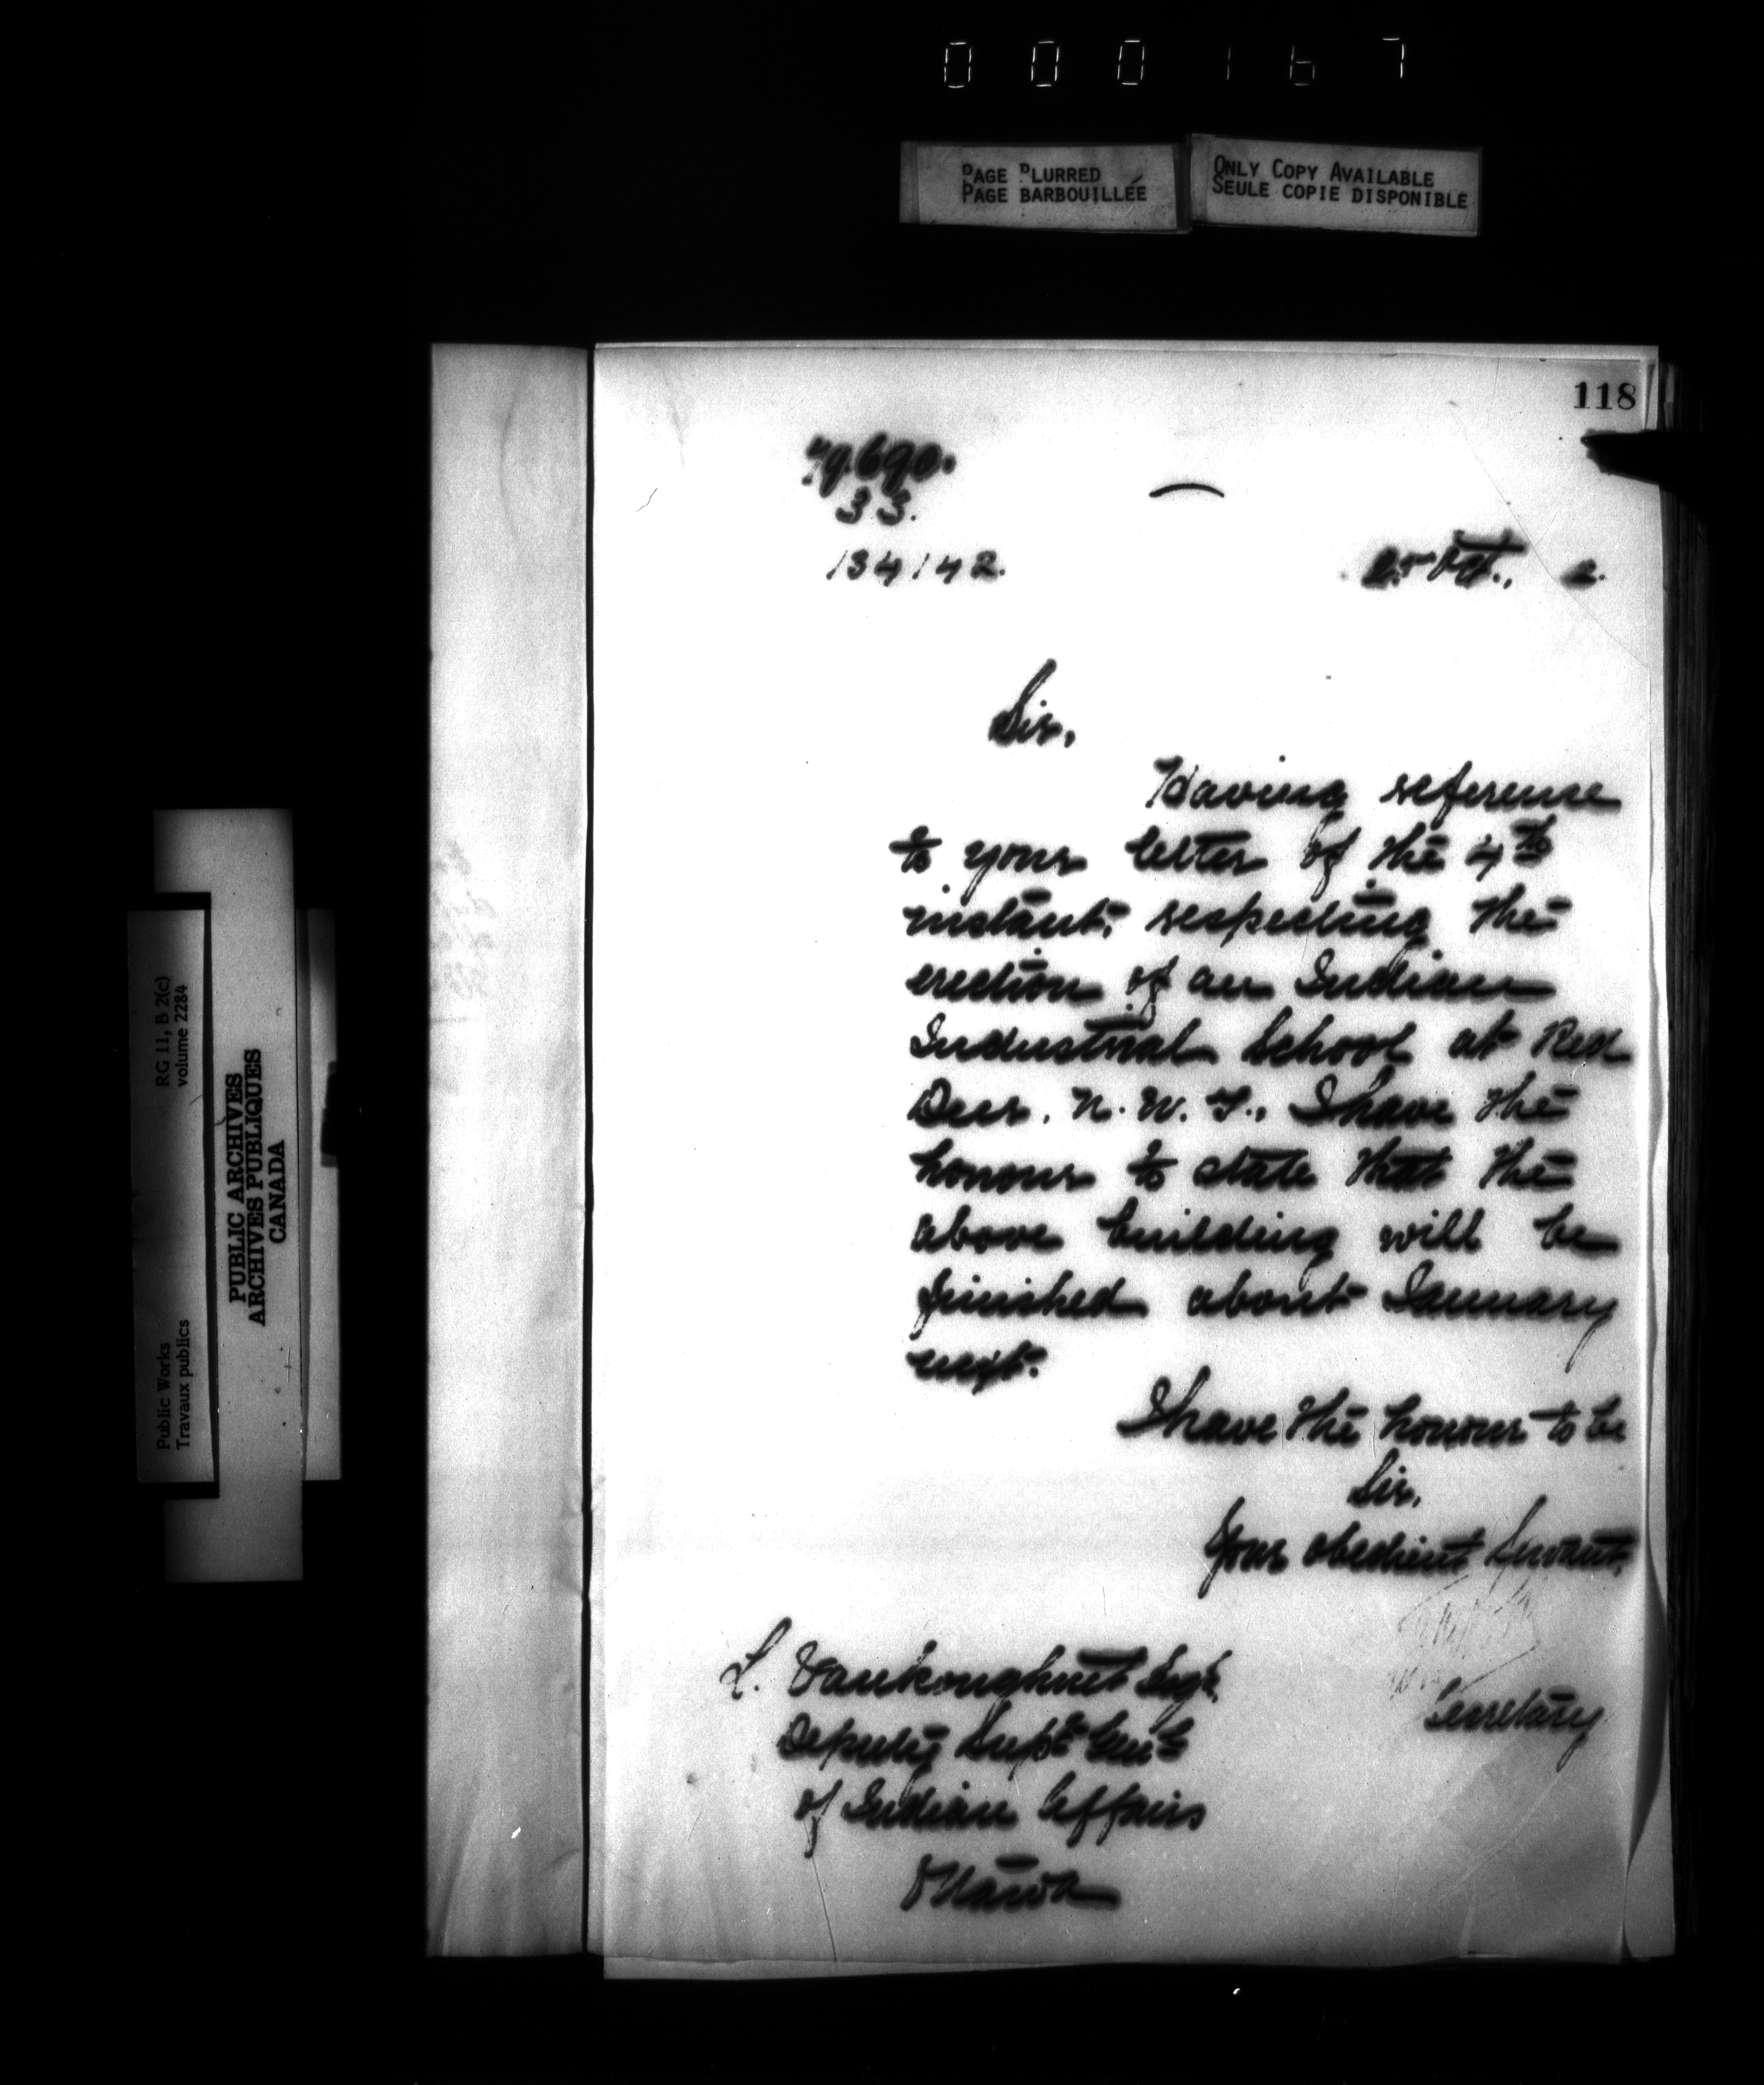 000167
PAGE BLURRED
PAGE BARBOUILLÉE
ONLY COPY AVAILABLE
SEULE COPIE DISPONIBLE
118
33.
134142.
Oct., 2.
Sir,
Having reference
to your letter of the 4th
instant, respecting the
erection of an Indian
Industrial School at Red
Deer, N. W. T., I have the
honour to state that the
above building will be
finished about January
next.
I have the honour to be
Sir,
Your obedient Servant,
Secretary
L. Vankoughnet Esqr.
Deputy Supt Genl
of Indian Affairs
Ottawa
RG 11, B 2(c)
volume 2284
Public Works
Travaux publics
PUBLIC ARCHIVES
ARCHIVES PUBLIQUES
CANADA